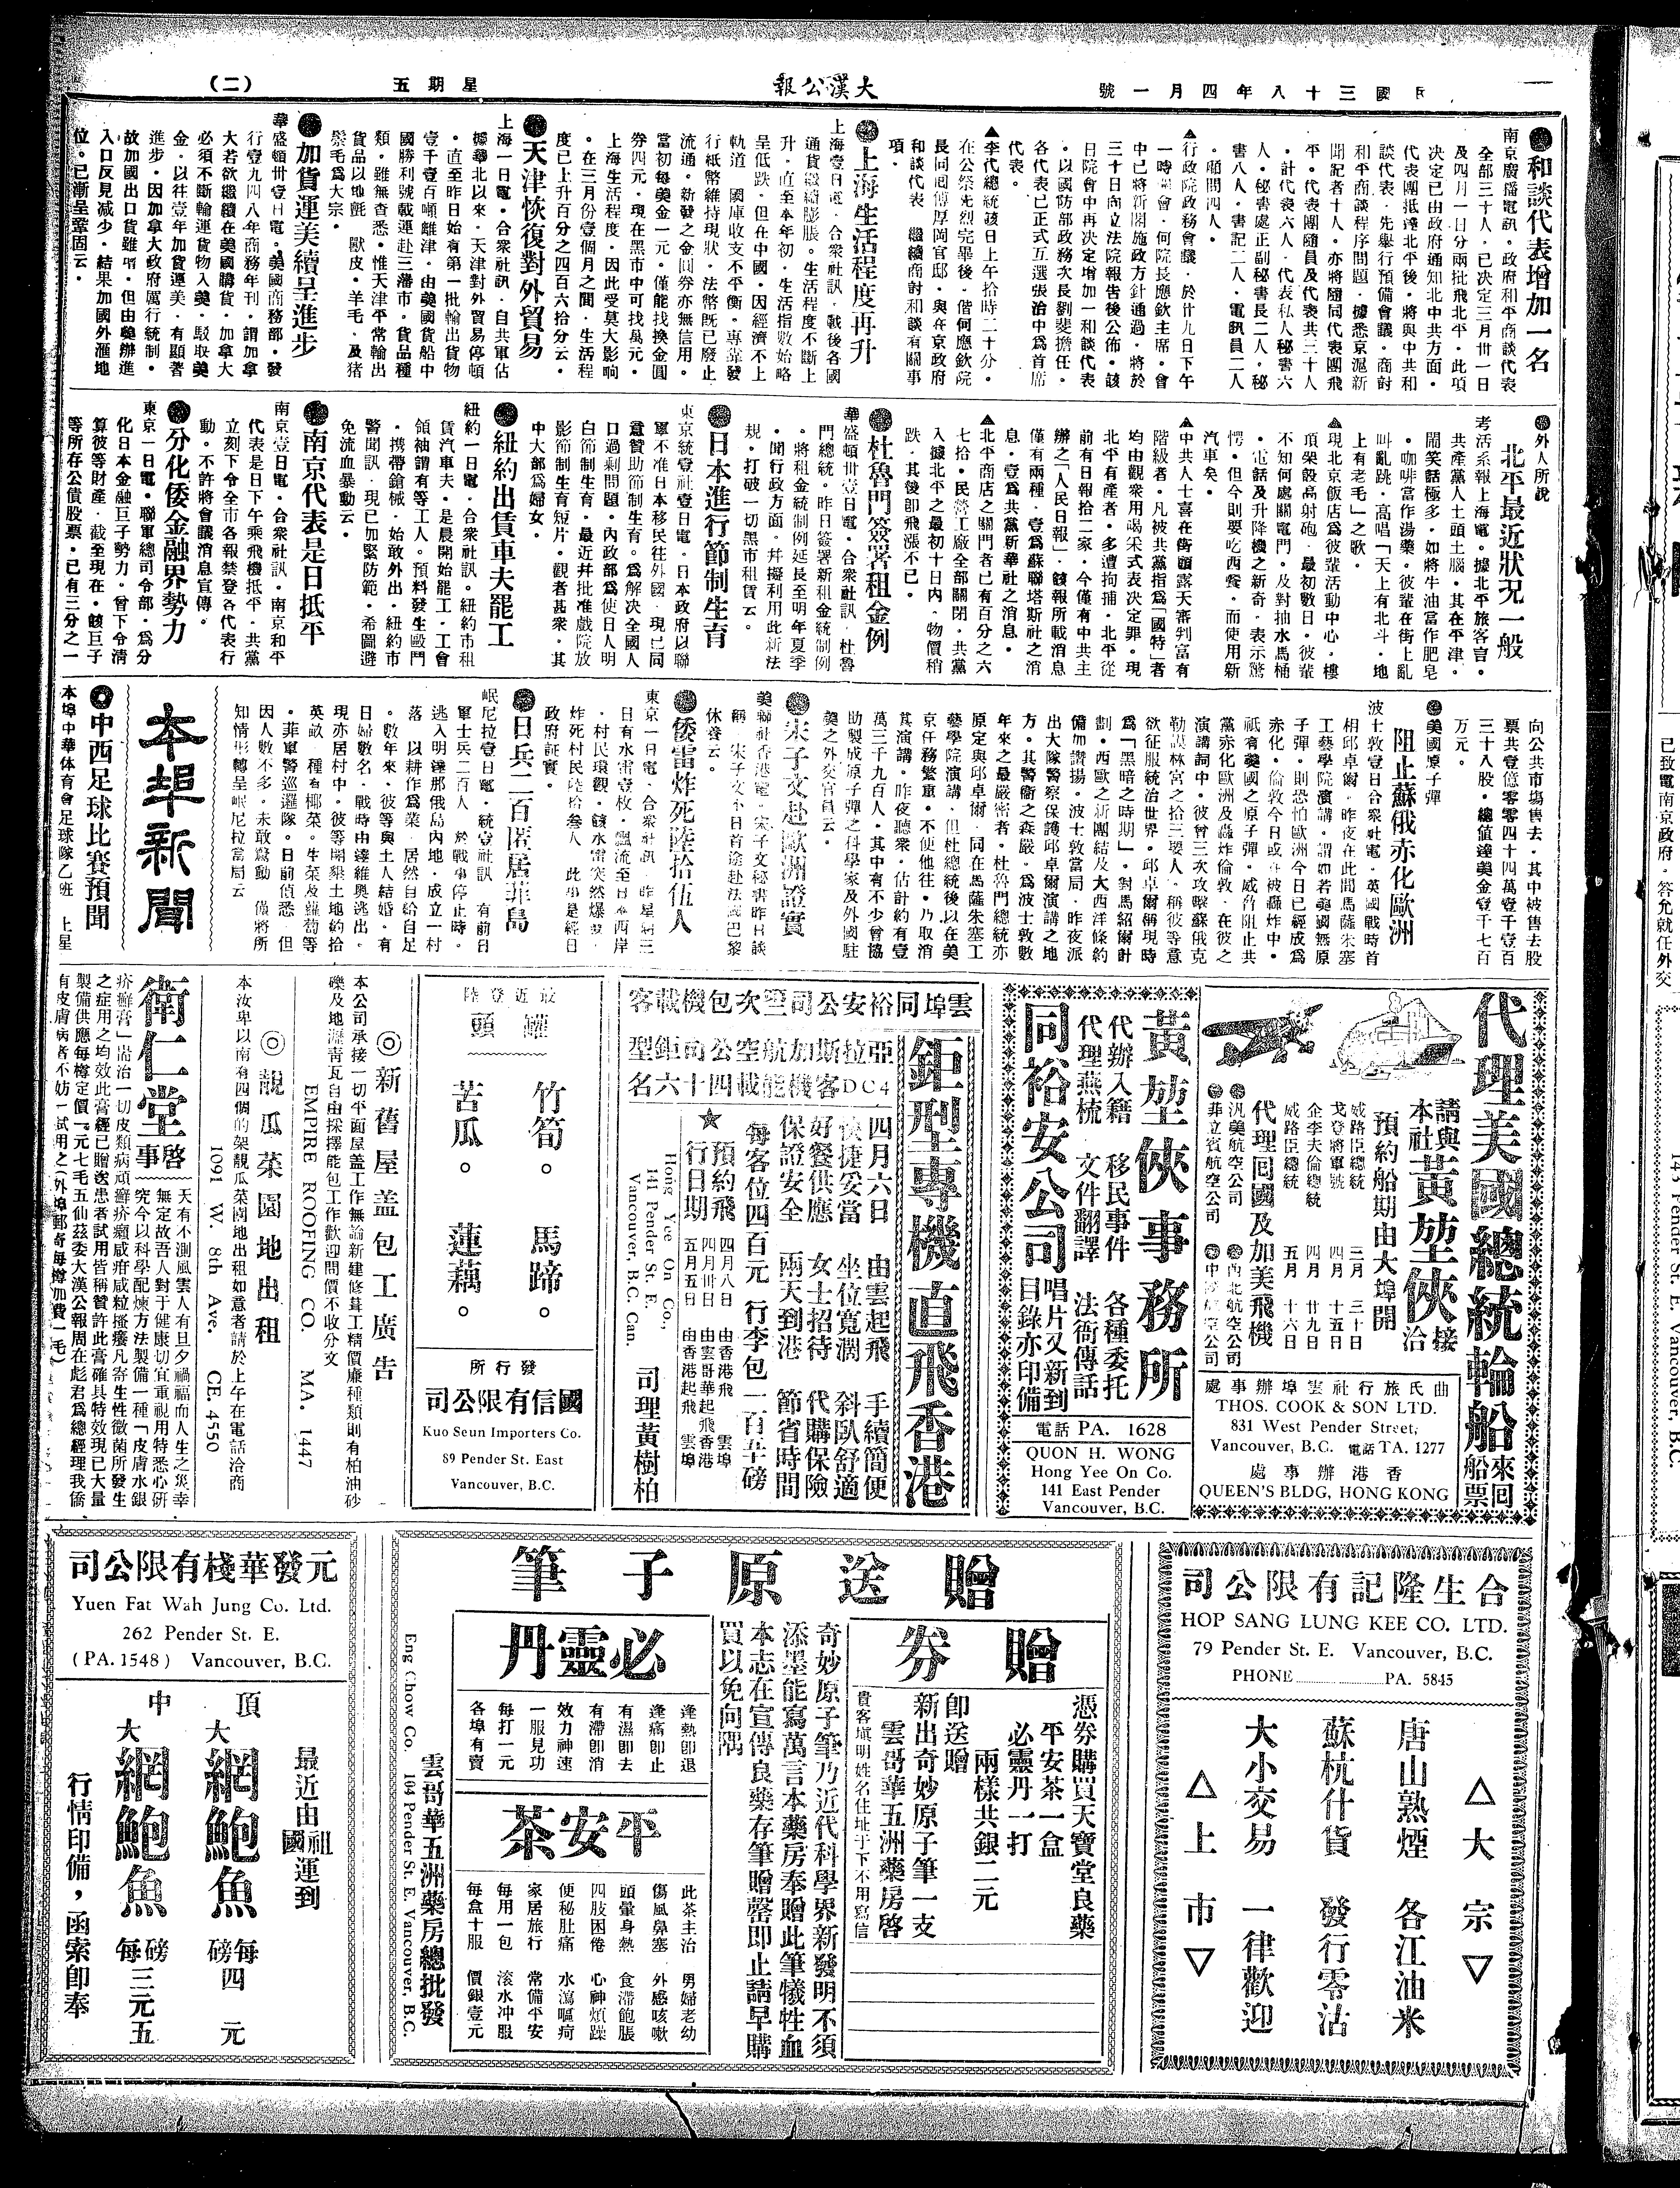 民國三十八年四月一號
大漢公報
星期五
(二)
和談代表增加一名
南京廣播電訊。政府和平商談代表
全部三十人。已決定三月卅一日
及四月一日分兩批飛北平。此項
決定已由政府通知北中共方面。
代表團抵達北平後。將與中共和
談代表。先舉行預備會議。商討
和平商談程序問題。據悉京滬新
聞記者十人。亦將隨同代表團飛
平。代表團隨員及代表共三十人
。計代表六人。代表私人秘書六
人。秘書處正副秘書長二人。秘
書八人。書記二人。電訊員二人
。顧問四人。
▲行政院政務會議。於廿九日下午
一時開會。何院長應欽主席。會
中已將新閣施政方針通過。將於
三十日向立法院報告後公佈。該
日院會中再決定增加一和談代表
。以國防部政務次長劉斐擔任。
各代表已正式互選張治中爲首席
代表。
▲李代總統該日上午拾時二十分。
在公祭先烈完畢後。偕何應欽院
長同回傅厚岡官邸。與在京政府
和談代表。繼續商討和談有關事
項。
上海生活程度再升
上海壹日電。合衆社訊。戰後各國
通貨繼續膨脹。生活程度不斷上
升。直至本年初。生活指數始略
呈低跌。但在中國。因經濟不上
軌道。國庫收支不平衡。專靠發
行紙幣維持現狀。法幣既已廢止
流通。新發之金圓券亦無信用。
當初每美金一元。僅能找換金圓
券四元。現在黑市中可找萬元。
上海生活程度。因此受莫大影响
。在三月份壹個月之間。生活程
度已上升百分之四百六拾分云。
天津恢復對外貿易
上海一日電。合衆社訊。自共軍佔
據華北以來。天津對外貿易停頓
。直至昨日始有第一批輸出貨物
壹千壹百噸離津。由美國貨船中
國勝利號載運赴三藩市。貨品種
類。雖無查悉。惟天津平常輸出
貨品以地氈。獸皮。羊毛。及猪
鬃毛爲大宗。
加貨運美續呈進步
華盛頓卅壹日電。美國商務部。發
行壹九四八年商務年刊。謂加拿
大若欲繼續在美國購貨。加拿大
必須不斷輸運貨物入美。駁取美
金。以往壹年加貨運美。有顯著
進步。因加拿大政府厲行統制。
故加國出口貨雖增。但由美辦進
入口反見减少。結果加國外滙地
位。已漸呈鞏固云。
外人所說
北平最近狀况一般
考活系報上海電。據北平旅客言。
共產黨人土頭土腦。其在平津。
鬧笑話極多。如將牛油當作肥皂
。咖啡當作湯藥。彼輩在街上亂
叫亂跳。高唱「天上有北斗。地
上有老毛」之歌。
▲現北京飯店爲彼輩活動中心。樓
頂架設高射砲。最初數日。彼輩
不知何處關電門。及對抽水馬桶
。電話及升降機之新奇。表示驚
愕。但今則要吃西餐。而使用新
汽車矣。
▲中共人士喜在街頭露天審判富有
階級者。凡被共黨指爲「國特」者
均由觀衆用喝采式表決定罪。現
北平有產者。多遭拘捕。北平從
前有日報拾二家。今僅有中共主
辦之「人民日報」。該報所載消息
僅有兩種。壹爲蘇聯塔斯社之消
息。壹爲共黨新華社之消息。
▲北平商店之關門者已有百分之六
七拾。民營工廠全部關閉。共黨
入據北平之最初十日內。物價稍
跌。其後卽飛漲不已。
杜魯門簽署租金例
華盛頓卅壹日電。合衆社訊。杜魯
門總統。昨日簽署新租金統制例
。將租金統制例延長至明年夏季
。聞行政方面。幷擬利用此新法
規。打破一切黑市租賃云。
日本進行節制生育
東京統壹社壹日電。日本政府以聯
軍不准日本移民往外國。現已同
意贊助節制生育。爲解决全國人
口過剩問題。內政部爲使日人明
白節制生育。最近幷批准戲院放
影節制生育短片。觀者甚衆。其
中大部爲婦女。
紐約出賃車夫罷工
紐約一日電。合衆社訊。紐約市租
賃汽車夫。是晨開始罷工。工會
領袖謂有等工人。預料發生毆鬥
。携帶鎗械。始敢外出。紐約市
警聞訊。現已加緊防範。希圖避
免流血暴動云。
南京代表是日抵平
南京壹日電。合衆社訊。南京和平
代表是日下午乘飛機抵平。共黨
立刻下令全市各報禁登各代表行
動。不許將會議消息宣傳。
分化倭金融界勢力
東京一日電。聯軍總司令部。爲分
化日本金融巨子勢力。曾下令清
算彼等財產。截至現在。該巨子
等所存公債股票。已有三分之一
向公共市塲售去。其中被售去股
票共壹億零零四十四萬壹千壹百
三十八股。總值達美金壹千七百
万元。
美國原子彈
阻止蘇俄赤化歐洲
波士敦壹日合衆社電。英國戰時首
相邱卓爾。昨夜在此間馬薩朱塞
工藝學院演講。謂如若美國無原
子彈。則恐怕歐洲今日已經成爲
赤化。倫敦今日或在被轟炸中。
祇有美國之原子彈。威脅阻止共
黨赤化歐洲及轟炸倫敦。在彼之
演講詞中。彼曾三次攻擊蘇俄克
勒謨林宮之拾三要人。稱彼等意
欲征服統治世界。邱卓爾稱現時
爲「黑暗之時期」。對馬紹爾計
劃。西歐之新團結及大西洋條約
備加讚揚。波士敦當局。昨夜派
出大隊警察保護邱卓爾演講之地
方。其警衞之森嚴。爲波士敦數
年來之最嚴密者。杜魯門總統亦
原定與邱卓爾。同在馬薩朱塞工
藝學院演講。但杜總統後以在美
京任務繁重。不便他往。乃取消
其演講。昨夜聽衆。估計約有壹
萬三千九百人。其中有不少曾協
助製成原子彈之科學家及外國駐
美之外交官員云。
宋子文赴歐洲證實
美聯社香港電。宋子文秘書昨日談
稱。宋子文不日首途赴法國巴黎
休養云。
倭雷炸死陸拾伍人
東京一日電。合衆社訊。昨星期三
日有水雷壹枚。飄流至日本西岸
。村民環觀。該水雷突然爆發。
炸死村民陸拾叁人。此事是經日
政府証實。
日兵二百匿居菲島
岷尼拉壹日電。統壹社訊。有前日
軍士兵二百人。於戰事停止時。
逃入明達那俄島內地。成立一村
落。以耕作爲業。居然自給自足
。數年來。彼等與土人結婚。有
日婦數名。戰時由達維奧逃出。
現亦居村中。彼等開墾土地約拾
英畝。種有椰菜。生菜及蘿蔔等
。菲軍警巡邏隊。日前偵悉。但
因人數不多。未敢爲動。僅將所
知情形轉呈岷尼拉當局云。
本埠新聞
中西足球比賽預聞
本埠中華体育會足球隊乙班 上星
代理美國總統輪船來回船票
請與本社黃堃俠接洽
預約船期由大埠開
威路臣總統 三月三十日
戈登將軍號 四月十五日
企李夫倫總統 四月廿九日
威路臣總統 五月十六日
代理回國及加美飛機
汎美航空公司
西北航空公司
菲立賓航空公司
曲氏旅行社雲埠辦事處
THOS. COOK & SON LTD.
831 West Pender Street,
Vancouver, B.C. 電話 TA. 1277
香港辦事處
QUEEN'S BLDG, HONG KONG
黃堃俠事務所
代辦入籍 移民事件 各種委托
代理燕梳 文件翻譯 法衙傳話
同裕安公司
唱片又新到
目錄亦印備
電話 PA. 1628
QUON H. WONG
Hong Yee On Co.
141 East Pender
Vancouver, B.C.
雲埠同裕安公司第壹次包機載客
鉅型專機直飛香港
亞拉斯加航空公司鉅型
DC4客機能載四十六名
四月六日 由雲起飛 手續簡便
快捷妥當 坐位寬濶 斜臥舒適
好餐供應 女士招待 代購保險
保證安全 兩天到港 節省時間
每客位四百元 行李包一百五十磅
★預約飛行日期
四月八日 由香港飛雲埠
四月卅日 由雲哥華起飛香港
五月五日 由香港起飛雲埠
Hong Yee On Co.,
141 Pender St. E.
Vancouver, B.C. Can.
司理黃樹柏
最近登陸
罐頭
竹筍。 馬蹄。
苦瓜。 蓮藕。
發行所
國信有限公司
Kuo Seun Importers Co.
89 Pender St. East
Vancouver, B.C.
◎新舊屋盖包工廣告
本公司承接一切平面屋盖工作無論新建修葺工精價廉種類則有柏油砂
礫及地瀝靑瓦自由採擇能包工作歡迎問價不收分文
EMPIRE ROOFING CO. MA. 1447
◎靚瓜菜園地出租
本汝卑以南有四個的架靚瓜菜園地出租如意者請於上午在電話洽商
1091 W. 8th Ave. CE. 4550
衛仁堂啓事
天有不測風雲人有旦夕禍福而人生之災幸
無定故吾人對于健康切宜重視用特悉心硏
究今以科學配煉方法製備一種「皮膚水銀
疥癬膏」耑治一切皮類病頑癬疥癩咸疳咸粒搔癢凡寄生性黴菌所發生
之症用之均效此膏經已贈送患者試用皆稱賞許此膏確具特效現已大量
製備供應每樽定價一元七毛五仙茲委大漢公報周在彪君爲總經理我僑
有皮膚病者不妨一試用之(外埠郵寄每樽加費一毛)
合生隆記有限公司
HOP SANG LUNG KEE CO. LTD.
79 Pender St. E. Vancouver, B.C.
PHONE PA. 5845
△大宗▽
唐山熟煙 各江油米
蘇杭什貨 發行零沽
大小交易 一律歡迎
△上市▽
贈送原子筆
贈券
憑券購買天寶堂良藥
平安茶一盒
必靈丹一打
兩樣共銀二元
卽送贈
新出奇妙原子筆一支
雲哥華五洲藥房啓
貴客塡明姓名住址于下不用寫信
奇妙原子筆乃近代科學界新發明不須
添墨能寫萬言本藥房奉贈此筆犧牲血
本志在宣傳良藥存筆贈罄即止請早購
買以免向隅
必靈丹
逢熱卽退
逢痛卽止
有濕卽去
有滯卽消
效力神速
一服見功
每打一元
各埠有賣
平安茶
此茶主治 男婦老幼
傷風鼻塞 外感咳嗽
頭暈身熱 食滯飽脹
四肢困倦 心神煩躁
便秘肚痛 水瀉嘔疴
家居旅行 常備平安
每用一包 滾水冲服
每盒十服 價銀壹元
雲哥華五洲藥房總批發
Eng Chow Co. 104 Pender St. E. Vancouver, B.C.
元發華棧有限公司
Yuen Fat Wah Jung Co. Ltd.
262 Pender St. E.
(PA. 1548) Vancouver, B.C.
最近由祖國運到
頂大網鮑魚 每磅四元
中大網鮑魚 每磅三元五
行情印備,函索卽奉